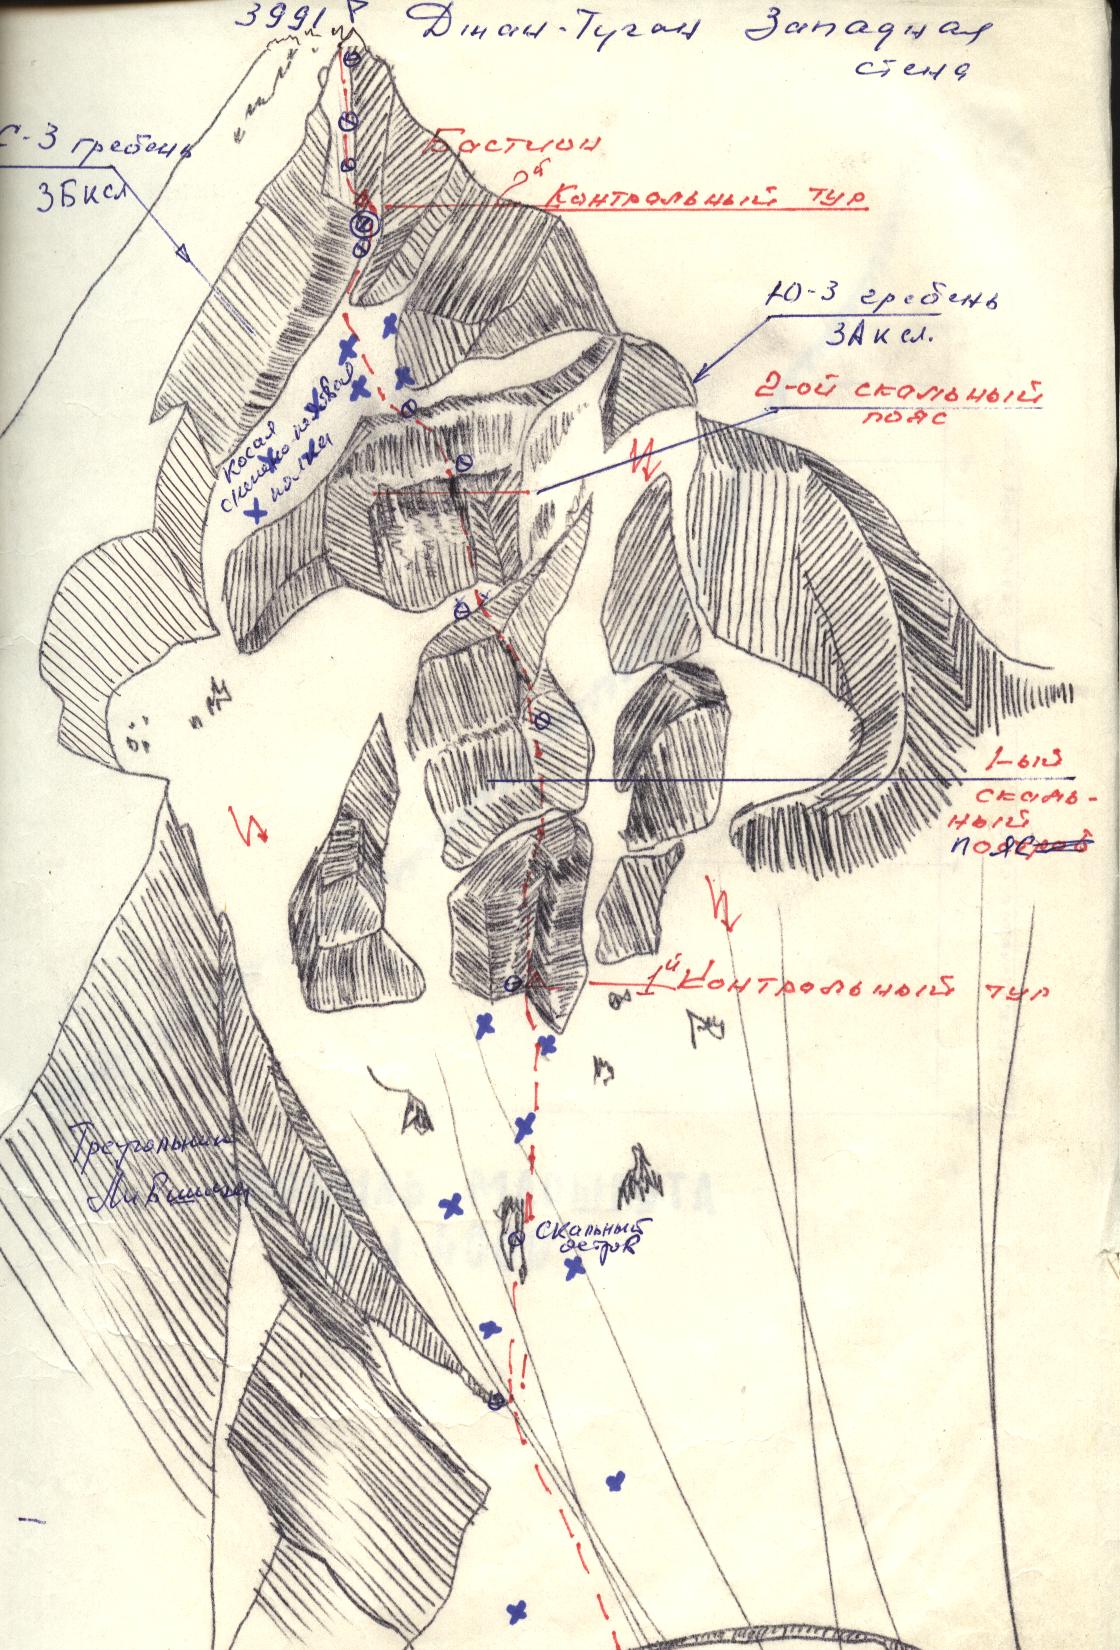 3991 Джан-Туган Западная
стена
С-З гребень
3Б к сл
Бастион
2й Контрольный тур
Ю-З гребень
3А к сл.
2-ой скальный
пояс
Косая
полка
1-ый
скаль-
ный
пояс
1й Контрольный тур
Треугольник
Скальный
остров